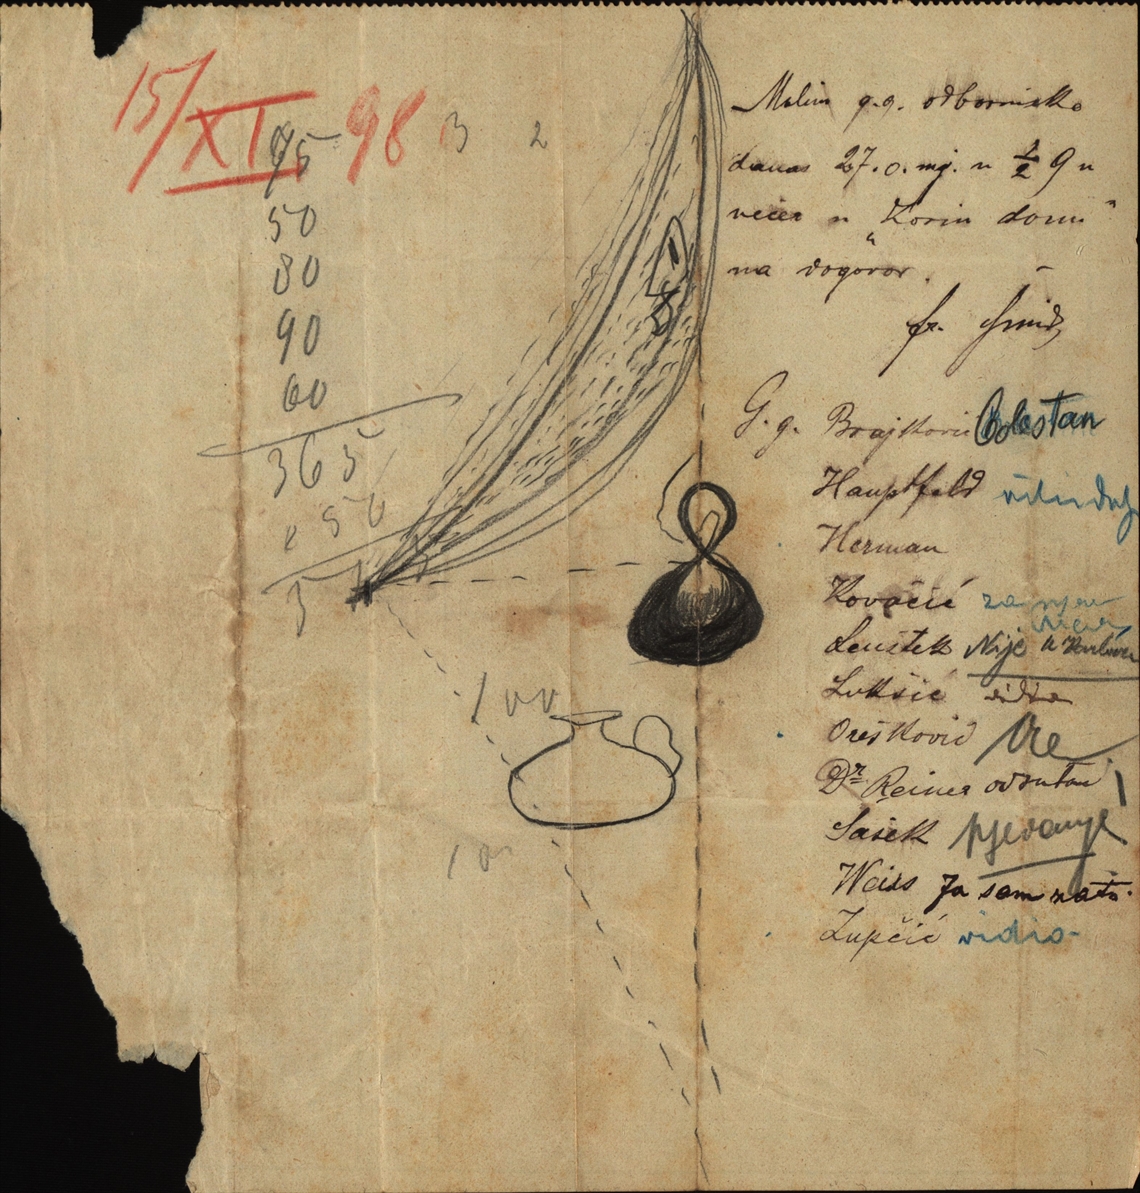 15/XI. 98
3 2
95
50
80
90
60
365
100
10
Molim g.g. odbornike
danas 27. o. mj. u ½ 9 u
večer u „Zorin domu"
na dogovor.
fr.
G. g. Brajković
Hauptfeld
Herman
Kovačić za
Leustek Nije u
Lukšić vidio
Orešković
Dr Reiner odsutan
Sašek pjevanje!
Weiss Ja sam zato.
Zupčić vidio